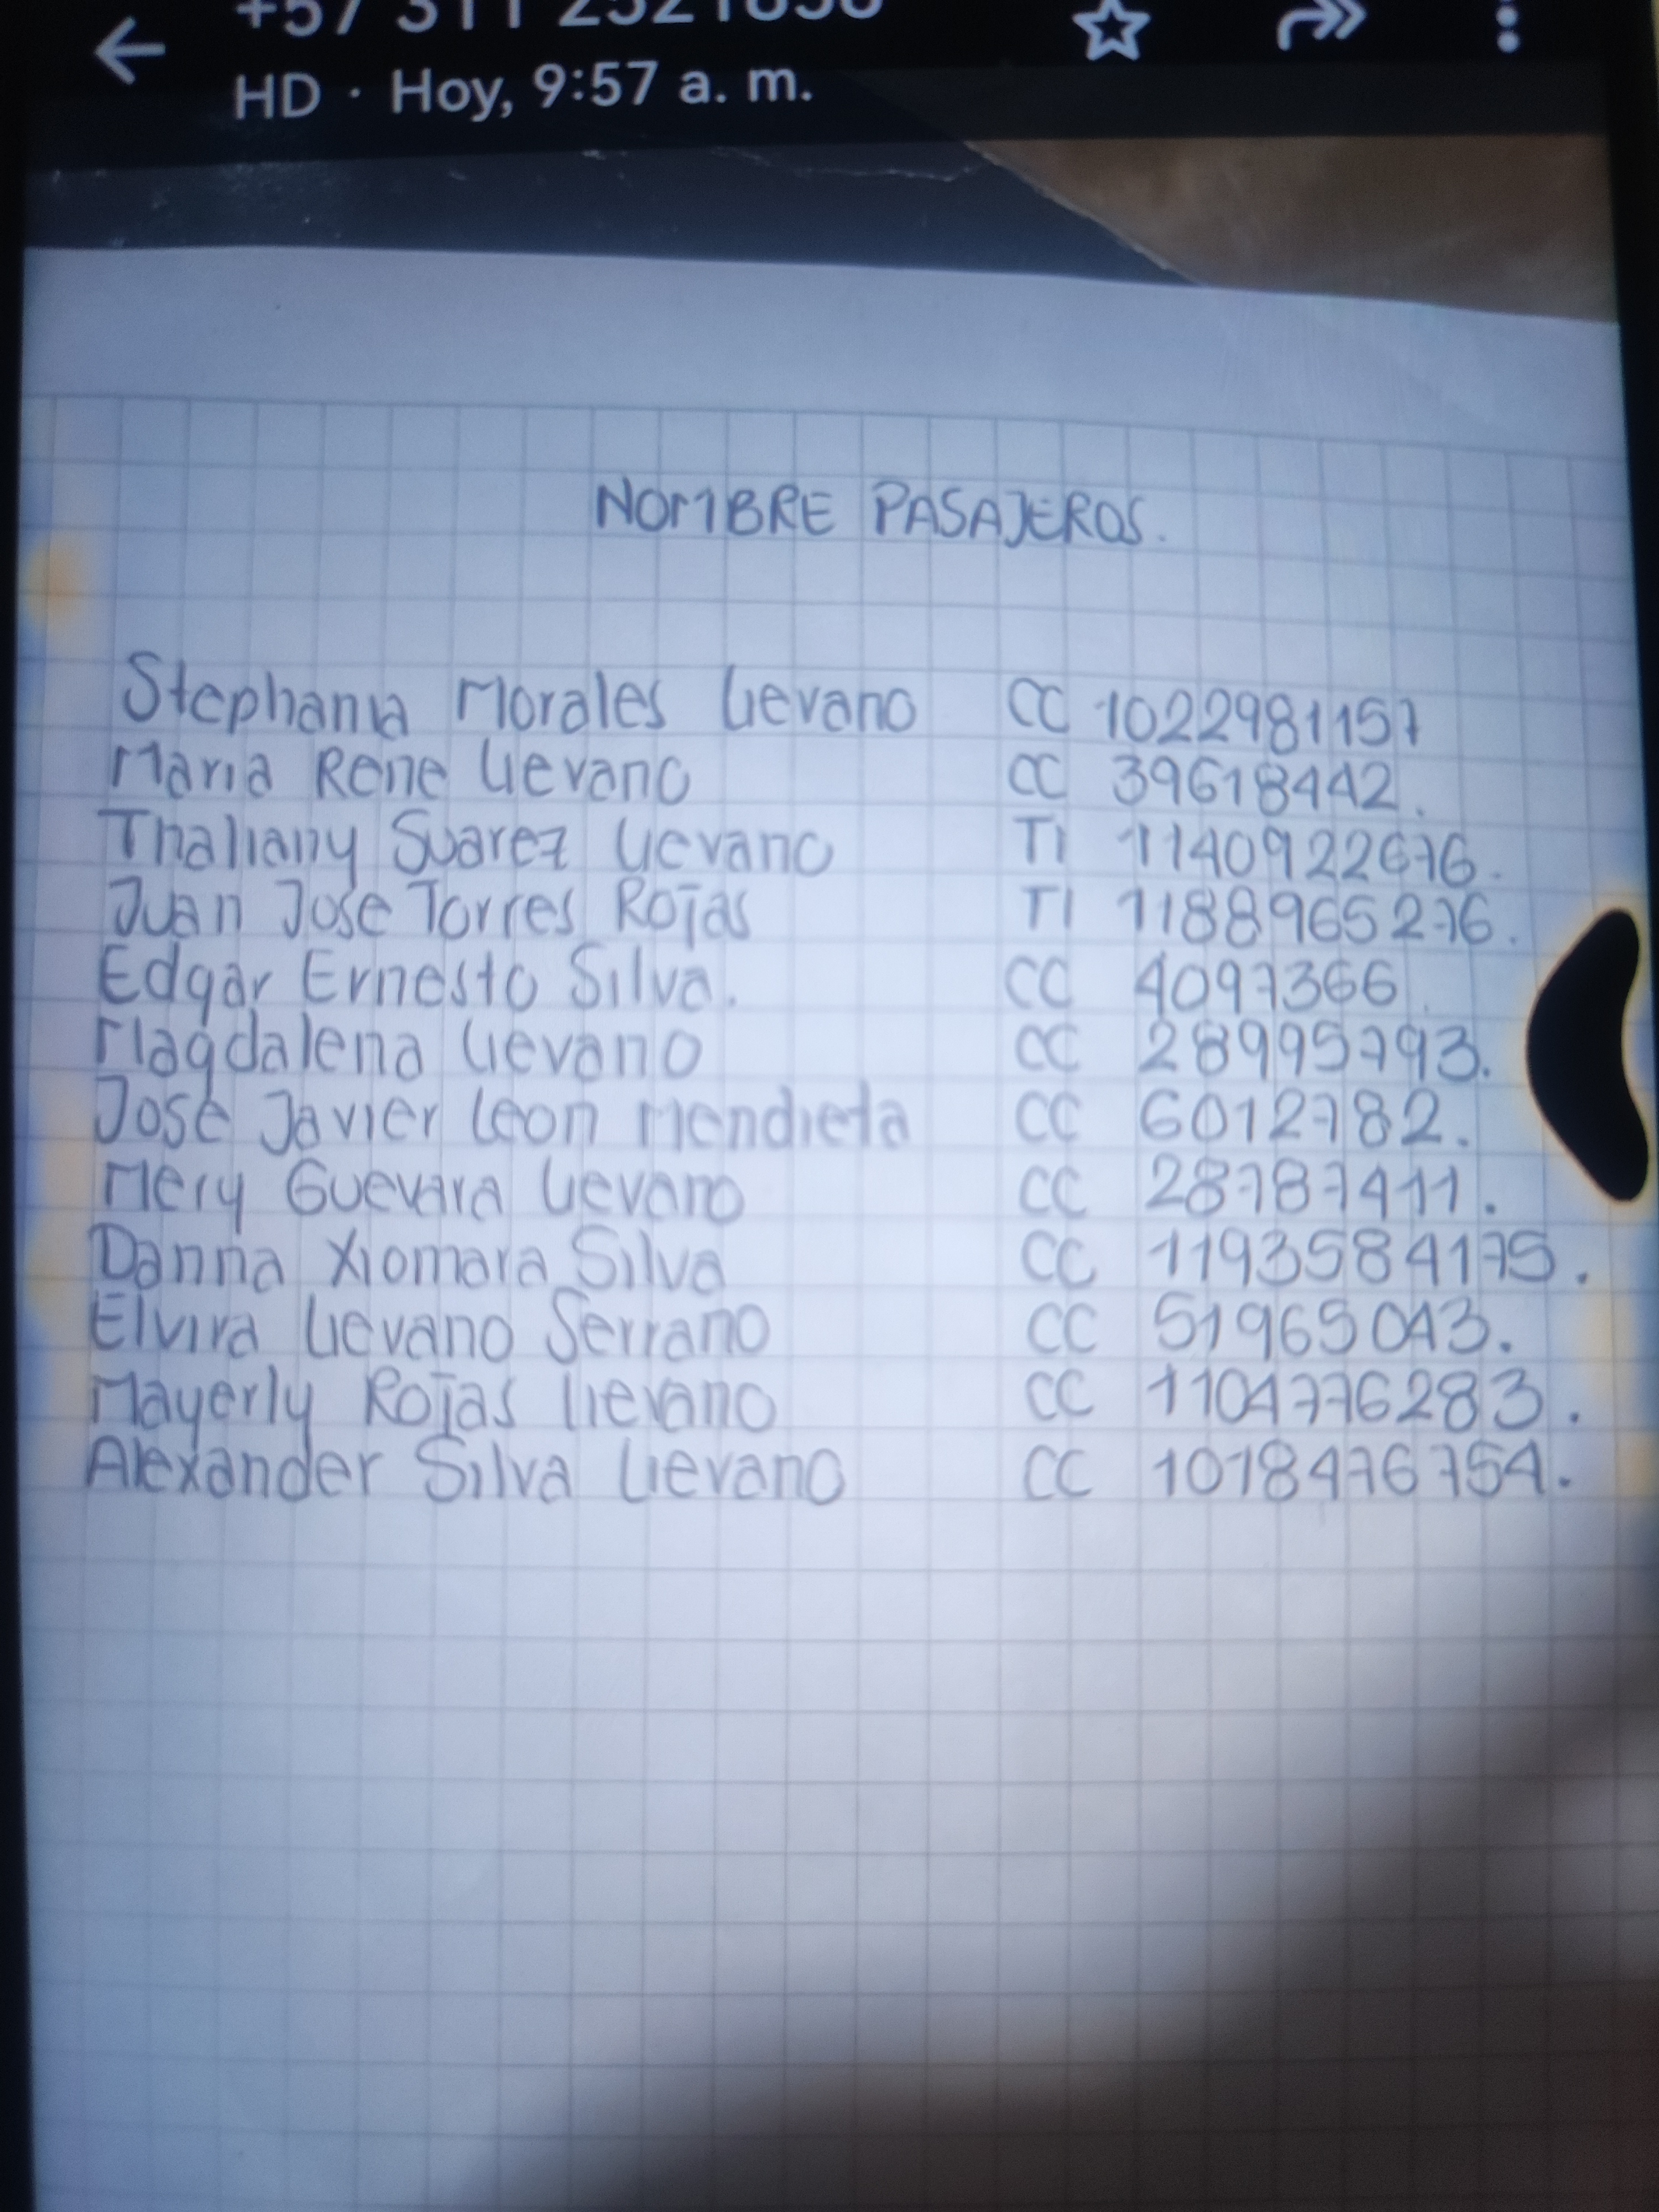 HD · Hoy, 9:57 a. m.
NOMBRE PASAJEROS.
Stephania Morales Lievano CC 1022981157
Maria Rene Lievano CC 39618442.
Thaliany Suarez Lievano TI 1140922676.
Juan Jose Torres Rojas TI 1188965276.
Edgar Ernesto Silva. CC 4097366.
Magdalena Lievano CC 28995793.
Jose Javier Leon Mendieta CC 6012782.
Mery Guevara Lievano CC 28787411.
Danna Xiomara Silva CC 1193584175.
Elvira Lievano Serrano CC 51965043.
Mayerly Rojas Lievano CC 1104776283.
Alexander Silva Lievano CC 1018476754.